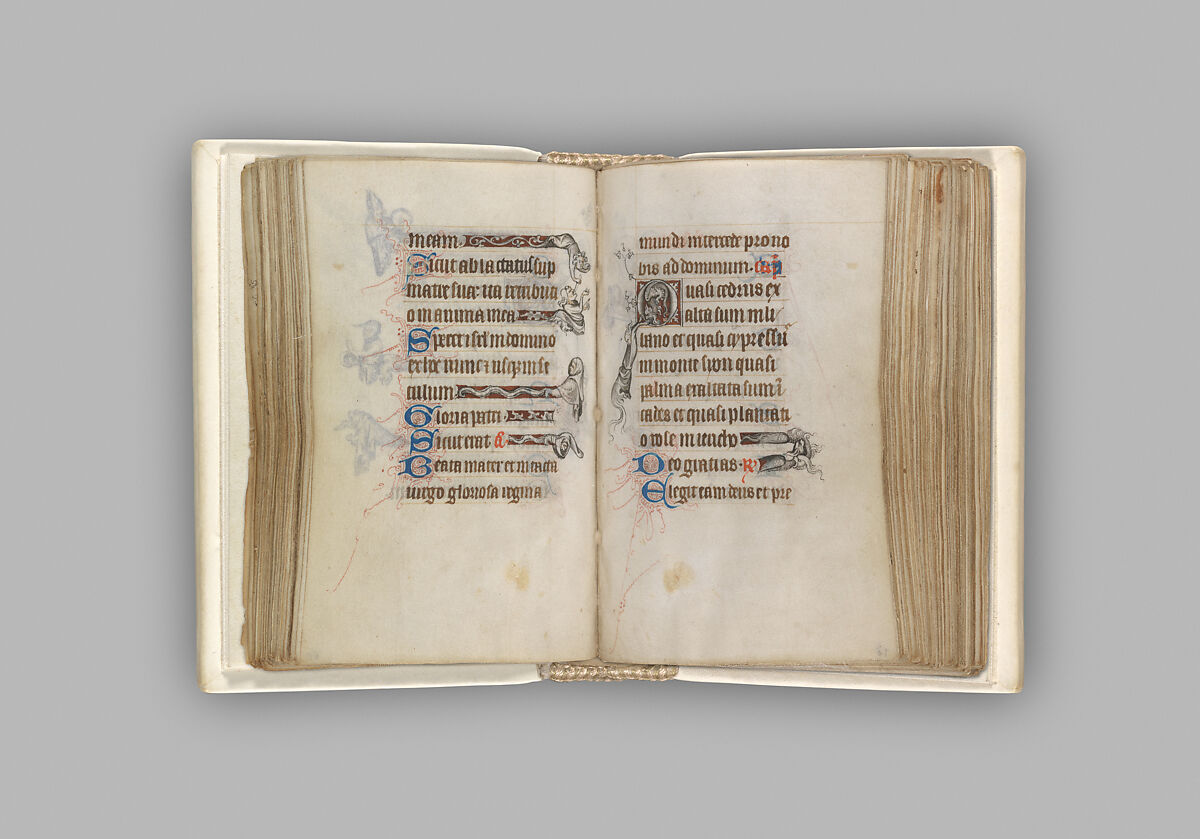 meam.
Sicut ablactatus sup
matre sua: ita retributi
o in anima mea
Speret isrl in domino
ex hoc nunc ⁊ usq; in se
culum
Gloria patri.
Sicut erat a͂
Beata mater et intacta
uirgo gloriosa regina
mundi intercede pro no
bis ad dominum. cap
Quasi cedrus ex
altata sum in li
bano et quasi cypressu
in monte syon quasi
palma exaltata sum ĩ
cades et quasi plantati
o rose in iericho
Deo gratias. R
Elegit eam deus et pre